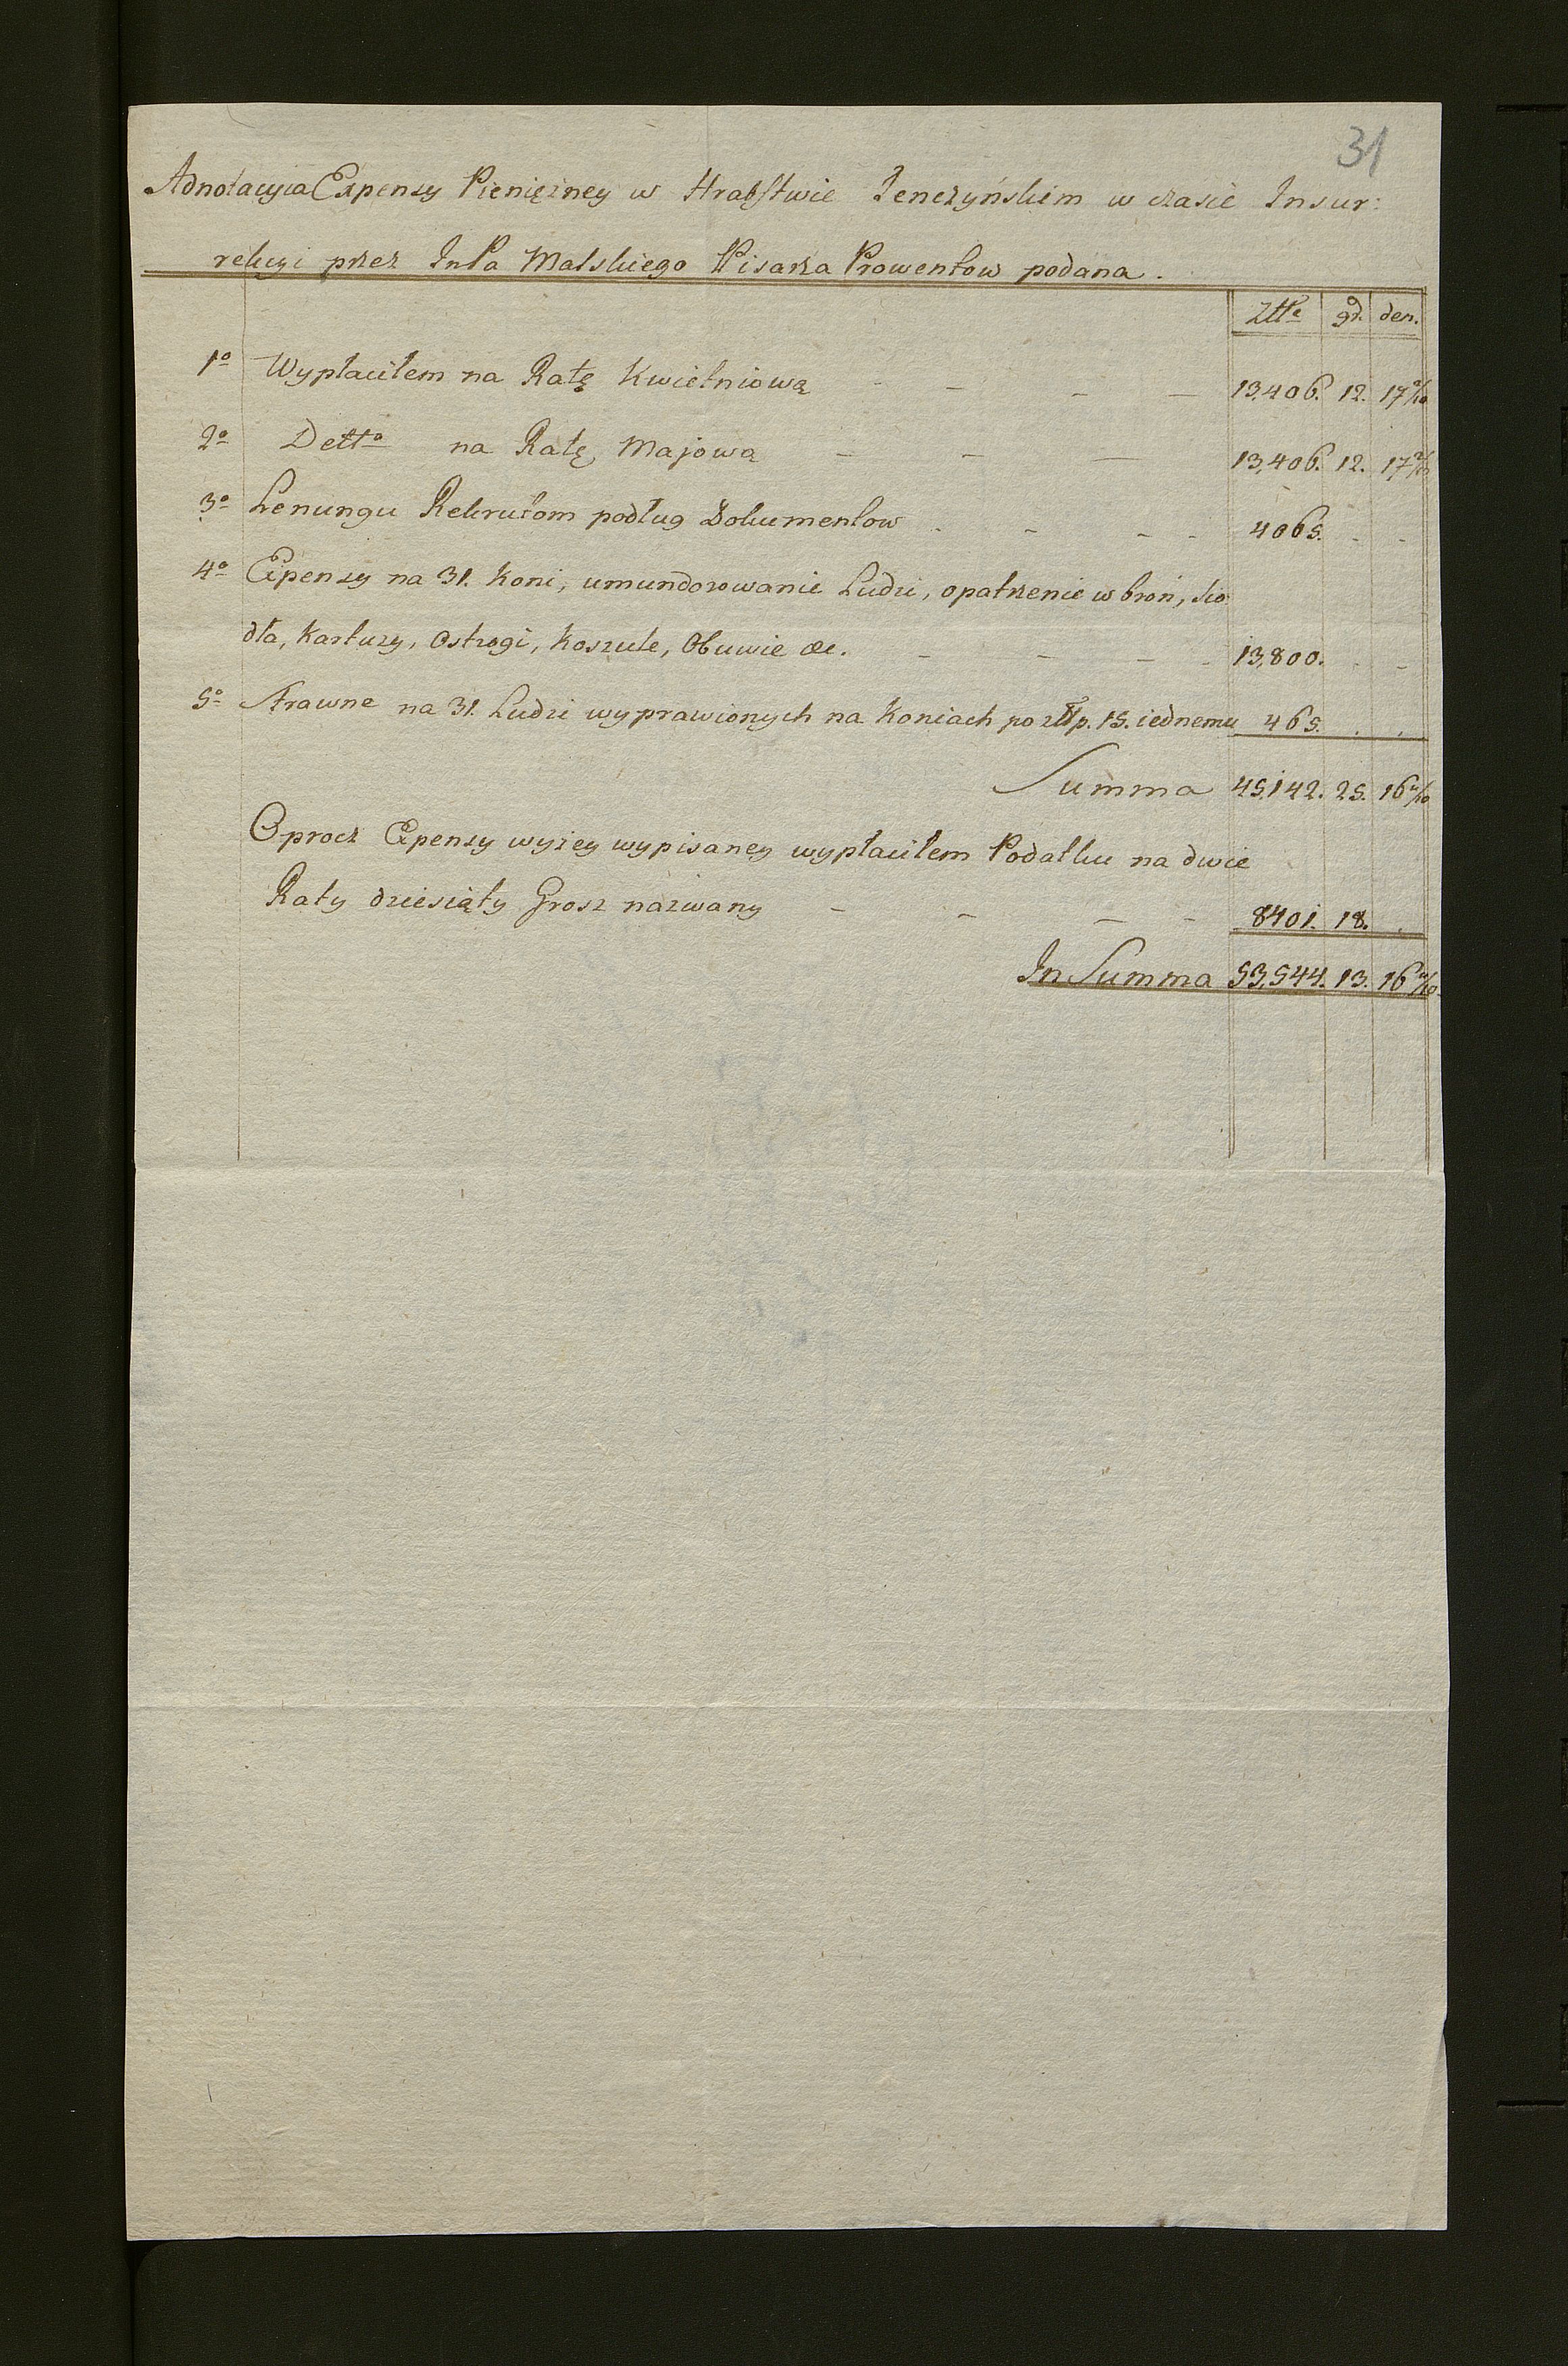 31
Adnotacyia Expensy Pieniężney w Hrabstwie Tenczyńskim w czasie Insur:
rekcyi przez ImPa Malskiego Pisarza Prowentow podana.
Złłe gr. den.
1o Wypłaciłem na Ratę Kwietniową - - - - 13,406. 12. 17 2/10
2o Detto na Ratę Majową - - - 13,406. 12. 17 2/10
3o Lenungu Rekrutom podług Dokumentow - - - - 4065. - -
4o Expensy na 31. Koni, umundorowanie Ludzi, opatrzenie w broń, Sio
dła, Kartuzy, Ostrogi, Koszule, Obuwie &c. - - - - 13,800. - -
5o Strawne na 31. Ludzi wyprawionych na Koniach po złłp. 15. iednemu 465. . .
Summa 45,142. 25. 16 4/10
Oprocz Expensy wyżey wypisaney wypłaciłem Podatku na dwie
Raty dziesiąty Grosz nazwany - - - - 8401. 18. .
In Summa 53,544. 13. 16 4/10